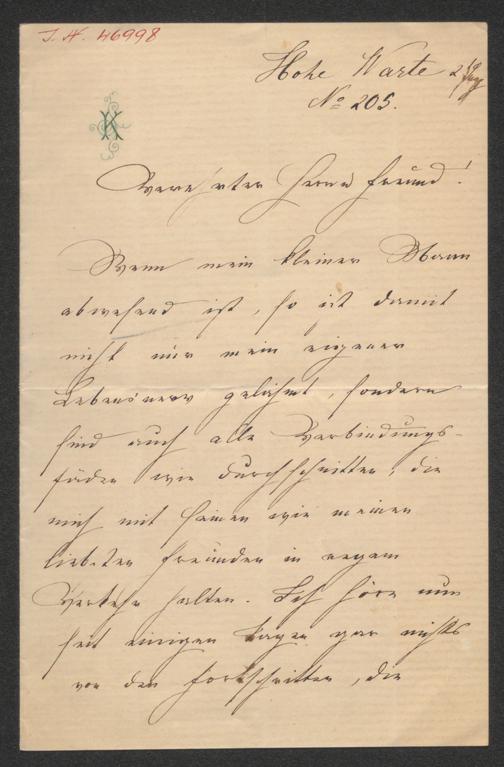 I. N. 46998
Hohe Warte
No 205.
K
Verehrter Herr Freund!
Wenn mein kleiner Mann
abwesend ist, so ist damit
nicht nur mein eigener
Lebensnerv gelähmt, sondern
sind auch alle Verbindungs-
fäden wie durchschnitten, die
mich mit seinen wie meinen
liebsten Freunden in regem
Verkehr halten. Ich höre nun
seit einigen Tagen gar nichts
von den Fortschritten, die